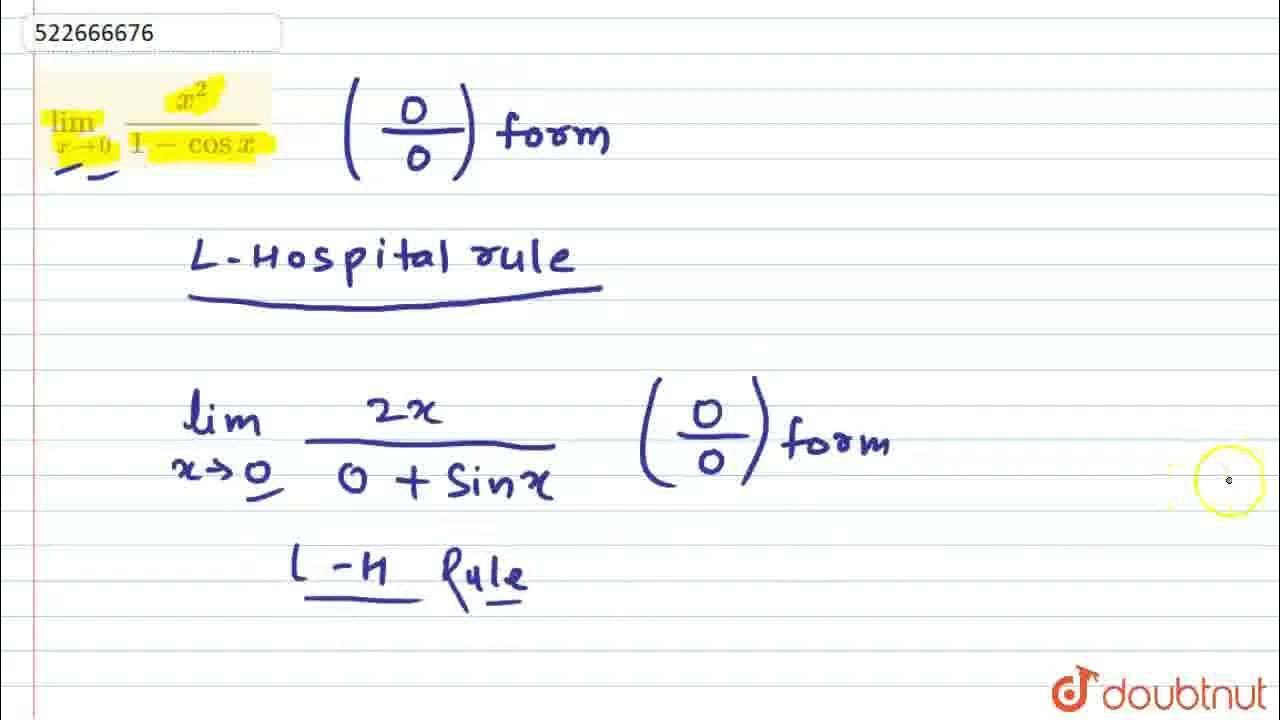 522666676
lim x→0 x²/(1 − cos x) (0/0) form
L-Hospital rule
lim x→0 2x/(0 + Sinx) (0/0) form
L-H Rule
doubtnut